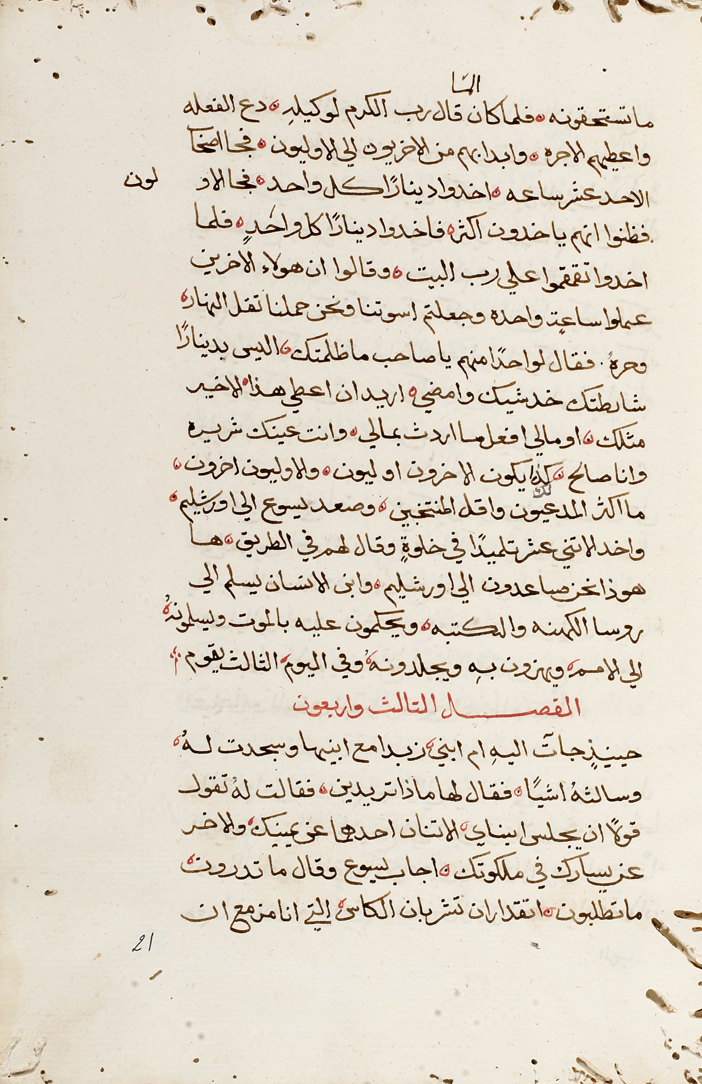 المسا
ما تستحقونه ۞ فلما كان قال رب الكرم لوكيله ۞ دع الفعله
واعطيهم الاجره ۞ وابدا بهم من الاخريون الي الاوليون ۞ فجا اصحاب
الاحد عشر ساعه ۞ اخدوا دينارًا كل واحد ۞ فجا الاو لون
فظنوا انهم ياخدون اكثر ۞ فاخدوا دينارًا كل واحدٍ ۞ فلما
اخدوا تقمقموا علي رب البيت ۞ وقالوا ان هولاء الاخرين
عملوا ساعة واحده وجعلتهم اسوتنا ونحن حملنا تقل النهار
وحره ۞ فقال لواحدًا منهم يا صاحب ما ظلمتك ۞ اليس بدينارًا
شارطتك خد شيك وامضي ۞ اريد ان اعطي هذا الاخير
مثلك ۞ او مالي افعل ما اردت بمالي ۞ وانت عينك شريره
وانا صالح ۞ كذا يكون الاخرون اوليون ۞ والاوليون اخرون ۞
ما اكثر المدعيون واقل المنتخبين ۞ وصعد يسوع الي اورشليم ۞
واخد الاتني عشر تلميدًا في خلوةٍ وقال لهم في الطريق ۞ ها
هودا نحن صاعدون الي اورشليم ۞ وابن الانسان يسلم الي
روسا الكهنه والكتبه ۞ ويحكمون عليه بالموت ويسلونهُ
الي الامم ۞ ويهزون به ويجلدونهُ وفي اليوم الثالث يقوم ۞
الفصل التالت واربعون
حينيذٍ جات اليه ام ابني زبدا مع ابنيها وسجدت لهُ
وسالتهُ اشيًا ۞ فقال لها ماذا تريدين ۞ فقالت لهُ تقول
قولًا ان يجلس ابناي الاتنان احدهما عن يمينك ۞ والاخر
عن يسارك في ملكوتك ۞ اجاب يسوع وقال ما تدرون
ما تطلبون ۞ اتقداران تشربان الكاس التي انا مزمع ان
21